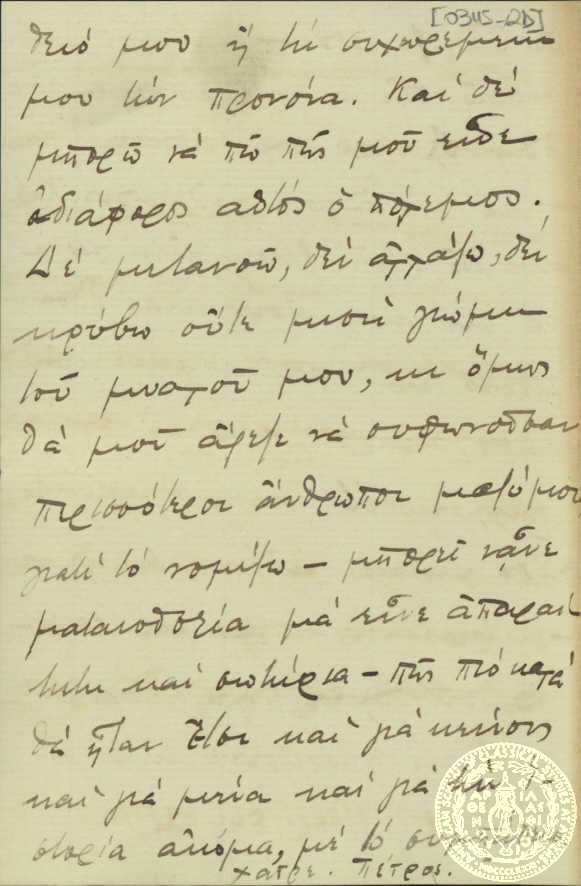 [0345-2D]
θειό μου ἢ τὴ συχωρεμένη
μου τὴν Προνοία. Καὶ δὲ
μπορῶ νὰ πῶ πὼς μοῦ εἶνε
ἀδιάφορος αὐτὸς ὁ πόλεμος.
Δὲ μετανοῶ, δὲν ἀλλάζω, δὲν
κρύβω οὔτε μισὴ γνώμη
τοῦ μυαλοῦ μου, κι ὅμως
θὰ μοῦ ἄρεζε νὰ συφωνοῦσαν
περισσότεροι ἄνθρωποι μαζύ μου
γιατὶ τὸ νομίζω — μπορεῖ νἆνε
ματαιοδοξία μὰ εἶνε ἀπαραί
τητη καὶ σωτήρια — πὼς πιὸ καλὰ
θὰ ἦταν ἔτσι καὶ γιὰ κείνους
καὶ γιὰ μένα καὶ γιὰ τὴ Ἱ-
στορία ἀκόμα, μὲ τὸ
Χαῖρε. Πέτρος.